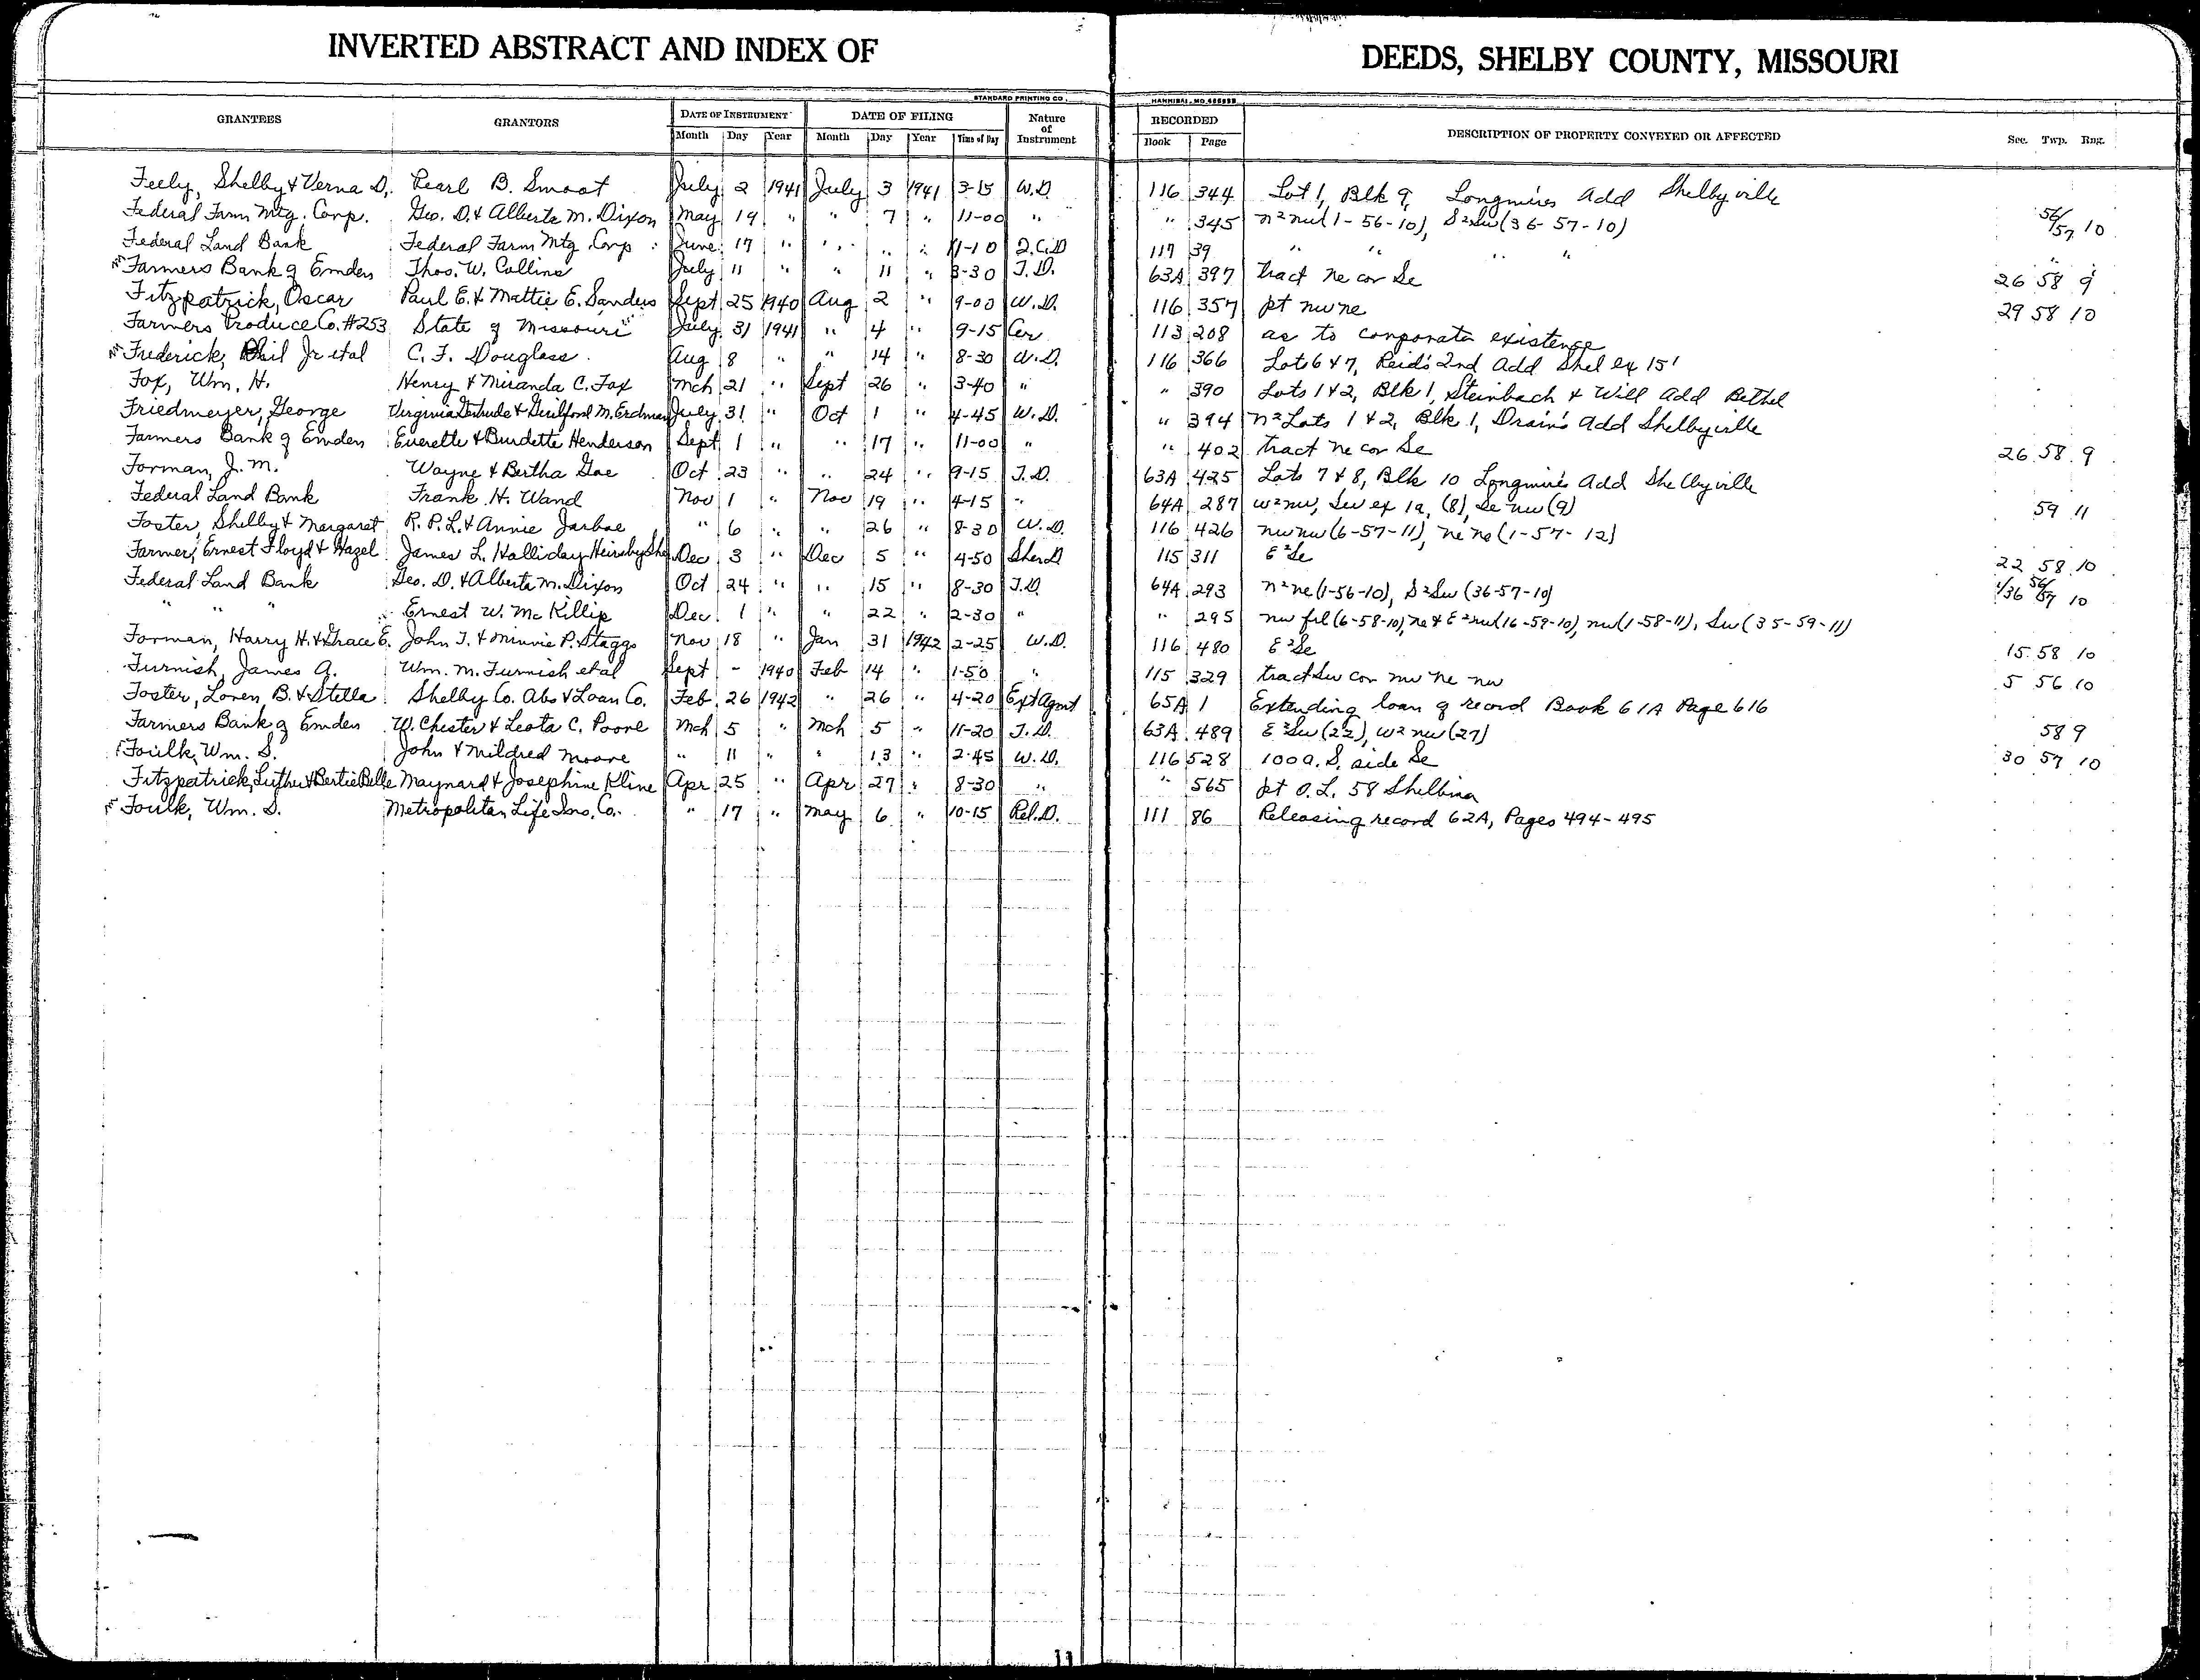 INVERTED ABSTRACT AND INDEX OF DEEDS, SHELBY COUNTY, MISSOURI
STANDARD PRINTING CO., HANNIBAL, MO.
GRANTEES GRANTORS DATE OF INSTRUMENT DATE OF FILING Nature of Instrument RECORDED DESCRIPTION OF PROPERTY CONVEYED OR AFFECTED Sec. Twp. Rng.
Month Day Year Month Day Year Time of Day Book Page
Feely, Shelby & Verna D. Pearl B. Smoot July 2 1941 July 3 1941 3-15 W.D. 116 344 Lot 1, Blk 9, Longmires Add Shelbyville
Federal Farm Mtg. Corp. Geo. D. & Alberta M. Dixon May 19 " " 7 " 11-00 " " 345 N²nw(1-56-10), S²Sw(36-57-10) 56/57 10
Federal Land Bank Federal Farm Mtg Corp June 17 " " " " 11-10 Q.C.D 117 39 " " " " " "
Farmers Bank of Emden Thos. W. Collins July 11 " " 11 " 3-30 T.D. 63A 397 tract ne cor Se 26 58 9
Fitzpatrick, Oscar Paul E. & Mattie E. Sanders Sept 25 1940 Aug 2 " 9-00 W.D. 116 357 pt nw ne 29 58 10
Farmers Produce Co. #253 State of Missouri July 31 1941 " 4 " 9-15 Cer 113 208 as to corporate existence
Frederick, Phil Jr etal C. F. Douglass Aug 8 " " 14 " 8-30 W.D. 116 366 Lot 6 & 7, Reid's 2nd Add Shel ex 15'
Fox, Wm. H. Henry & Miranda C. Fox Mch 21 " Sept 26 " 3-40 " " 390 Lots 1 & 2, Blk 1, Steinbach & Will Add Bethel
Friedmeyer, George Virginia Gertrude & Guilford M. Erdman July 31 " Oct 1 " 4-45 W.D. " 394 N² Lots 1 & 2, Blk 1, Drain's Add Shelbyville
Farmers Bank of Emden Everette & Burdette Henderson Sept 1 " " 17 " 11-00 " " 402 tract ne cor Se 26 58 9
Forman, J. M. Wayne & Bertha Goe Oct 23 " " 24 " 9-15 T.D. 63A 425 Lots 7 & 8, Blk 10 Longmire's Add Shelbyville
Federal Land Bank Frank H. Wand Nov 1 " Nov 19 " 4-15 " 64A 287 W²nw, Sw ex 1a, (8), Se nw (9) 59 11
Foster, Shelby & Margaret R. P. L. & Annie Jarboe " 6 " " 26 " 8-30 W.D. 116 426 nw nw (6-57-11), ne ne (1-57-12)
Farmer, Ernest Floyd & Hazel James L. Halliday Heirs by She Dec 3 " Dec 5 " 4-50 Sher D 115 311 E²Se 22 58 10
Federal Land Bank Geo. D. & Alberta M. Dixon Oct 24 " " 15 " 8-30 T.D. 64A 293 N²ne (1-56-10), S²Sw (36-57-10) 1/36 56/57 10
" " " Ernest W. McKillip Dec 1 " " 22 " 2-30 " " 295 nw frl (6-58-10), ne & E²nw (16-59-10), nw (1-58-11), Sw (35-59-11)
Forman, Harry H. & Grace E. John T. & Minnie P. Staggs Nov 18 " Jan 31 1942 2-25 W.D. 116 480 E²Se 15 58 10
Furnish, James A. Wm. M. Furnish etal Sept - 1940 Feb 14 " 1-50 " 115 329 tract Sw cor nw ne nw 5 56 10
Foster, Loren B. & Stella Shelby Co. Abs & Loan Co. Feb 26 1942 " 26 " 4-20 Ext Agmt 65A 1 Extending loan of record Book 61A Page 616
Farmers Bank of Emden W. Chester & Leota C. Poore Mch 5 " Mch 5 " 11-20 T.D. 63A 489 E²Sw (22), W²nw (27) 58 9
Foulk, Wm. S. John & Mildred Moore " 11 " " 13 " 2-45 W.D. 116 528 100a. S. side Se 30 57 10
Fitzpatrick, Luther & Bertie Belle Maynard & Josephine Kline Apr 25 " Apr 27 " 8-30 " " 565 pt O.L. 58 Shelbina
Foulk, Wm. S. Metropolitan Life Ins. Co. " 17 " May 6 " 10-15 Rel.D. 111 86 Releasing record 62A, Pages 494-495
11